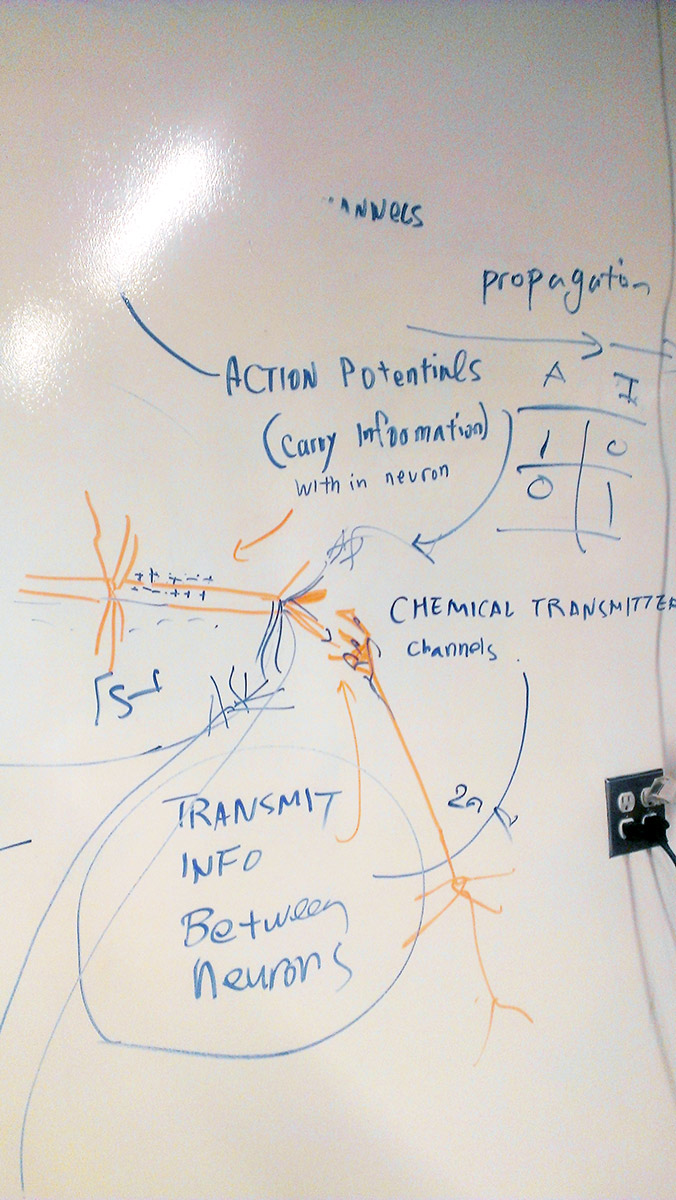 ANNELS
propagation
ACTION Potentials
A I
(Carry Information)
1 0
with in neuron
0 1
AP
CHEMICAL TRANSMITTER
channels
TRANSMIT
INFO
Between
Neurons